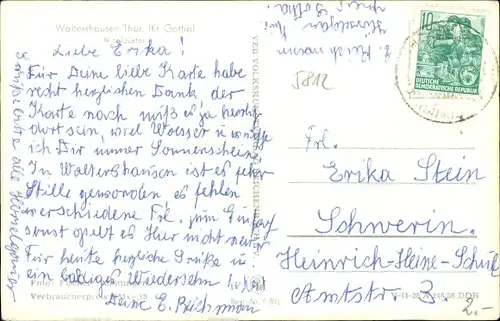 Waltershausen/Thür. (Kr. Gotha)
Nicolaustor
Liebe Erika!
Für Deine liebe Karte habe
recht herzlichen Dank, der
Karte nach muß es ja herrlich
dort sein, viel Wasser u. wünsche
ich Dir immer Sonnenschein.
In Waltershausen ist es sehr
Stille geworden es fehlen
verschiedene Frl. zum
sonst es Hier nicht
Für heute herzliche Grüße u.
ein baldiges Wiedersehn
Deine E. Reichmann
Verbraucherpreis
E. Reichmann
Gotha
5812
10
DEUTSCHE
DEMOKRATISCHE REPUBLIK
Frl.
Erika Stein
Schwerin.
Heinrich-Heine-Schule
Amtstr. 3.
DDR
2.-